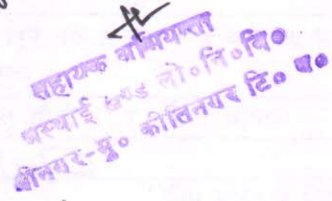 सहायक अभियन्ता
अस्थाई खण्ड लो०नि०वि०
श्रीनगर-मु० कीर्तिनगर टि० ग०